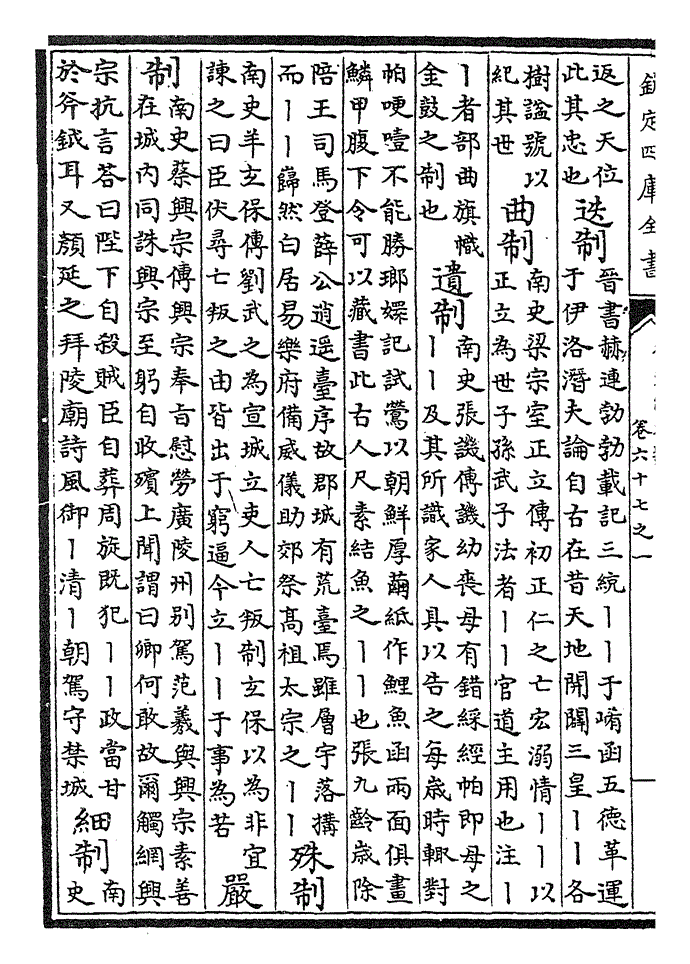 欽定四庫全書
卷六十七之一
返之天位
此其忠也
迭制
晉書赫連勃勃載記三統丨丨于崤函五德革運
于伊洛潛夫論自古在昔天地開闢三皇丨丨各
樹謚號以
紀其世
曲制
南史梁宗室正立傳初正仁之亡宏溺情丨丨以
正立為世子孫武子法者丨丨官道主用也注丨
丨者部曲旗幟
金鼓之制也
遺制
南史張譏傳譏幼喪母有錯綵經帕即母之
丨丨及其所識家人具以告之每歲時輒對
帕哽噎不能勝瑯嬛記試鶯以朝鮮厚繭紙作鯉魚函兩面俱畫
鱗甲腹下令可以藏書此古人尺素結魚之丨丨也張九齡歲除
陪王司馬登薛公逍遥臺序故郡城有荒臺焉雖層宇落搆
而丨丨巋然白居易樂府備威儀助郊祭髙祖太宗之丨丨
殊制
南史羊玄保傳劉武之為宣城立吏人亡叛制玄保以為非宜
諫之曰臣伏尋亡叛之由皆出于窮逼今立丨丨于事為若
嚴
制
南史蔡興宗傳興宗奉旨慰勞廣陵州别駕范羲與興宗素善
在城内同誅興宗至躬自收殯上聞謂曰卿何敢故爾觸網興
宗抗言答曰陛下自殺賊臣自葬周旋既犯丨丨政當甘
於斧鉞耳又顏延之拜陵廟詩風御丨清丨朝駕守禁城
細制
南
史